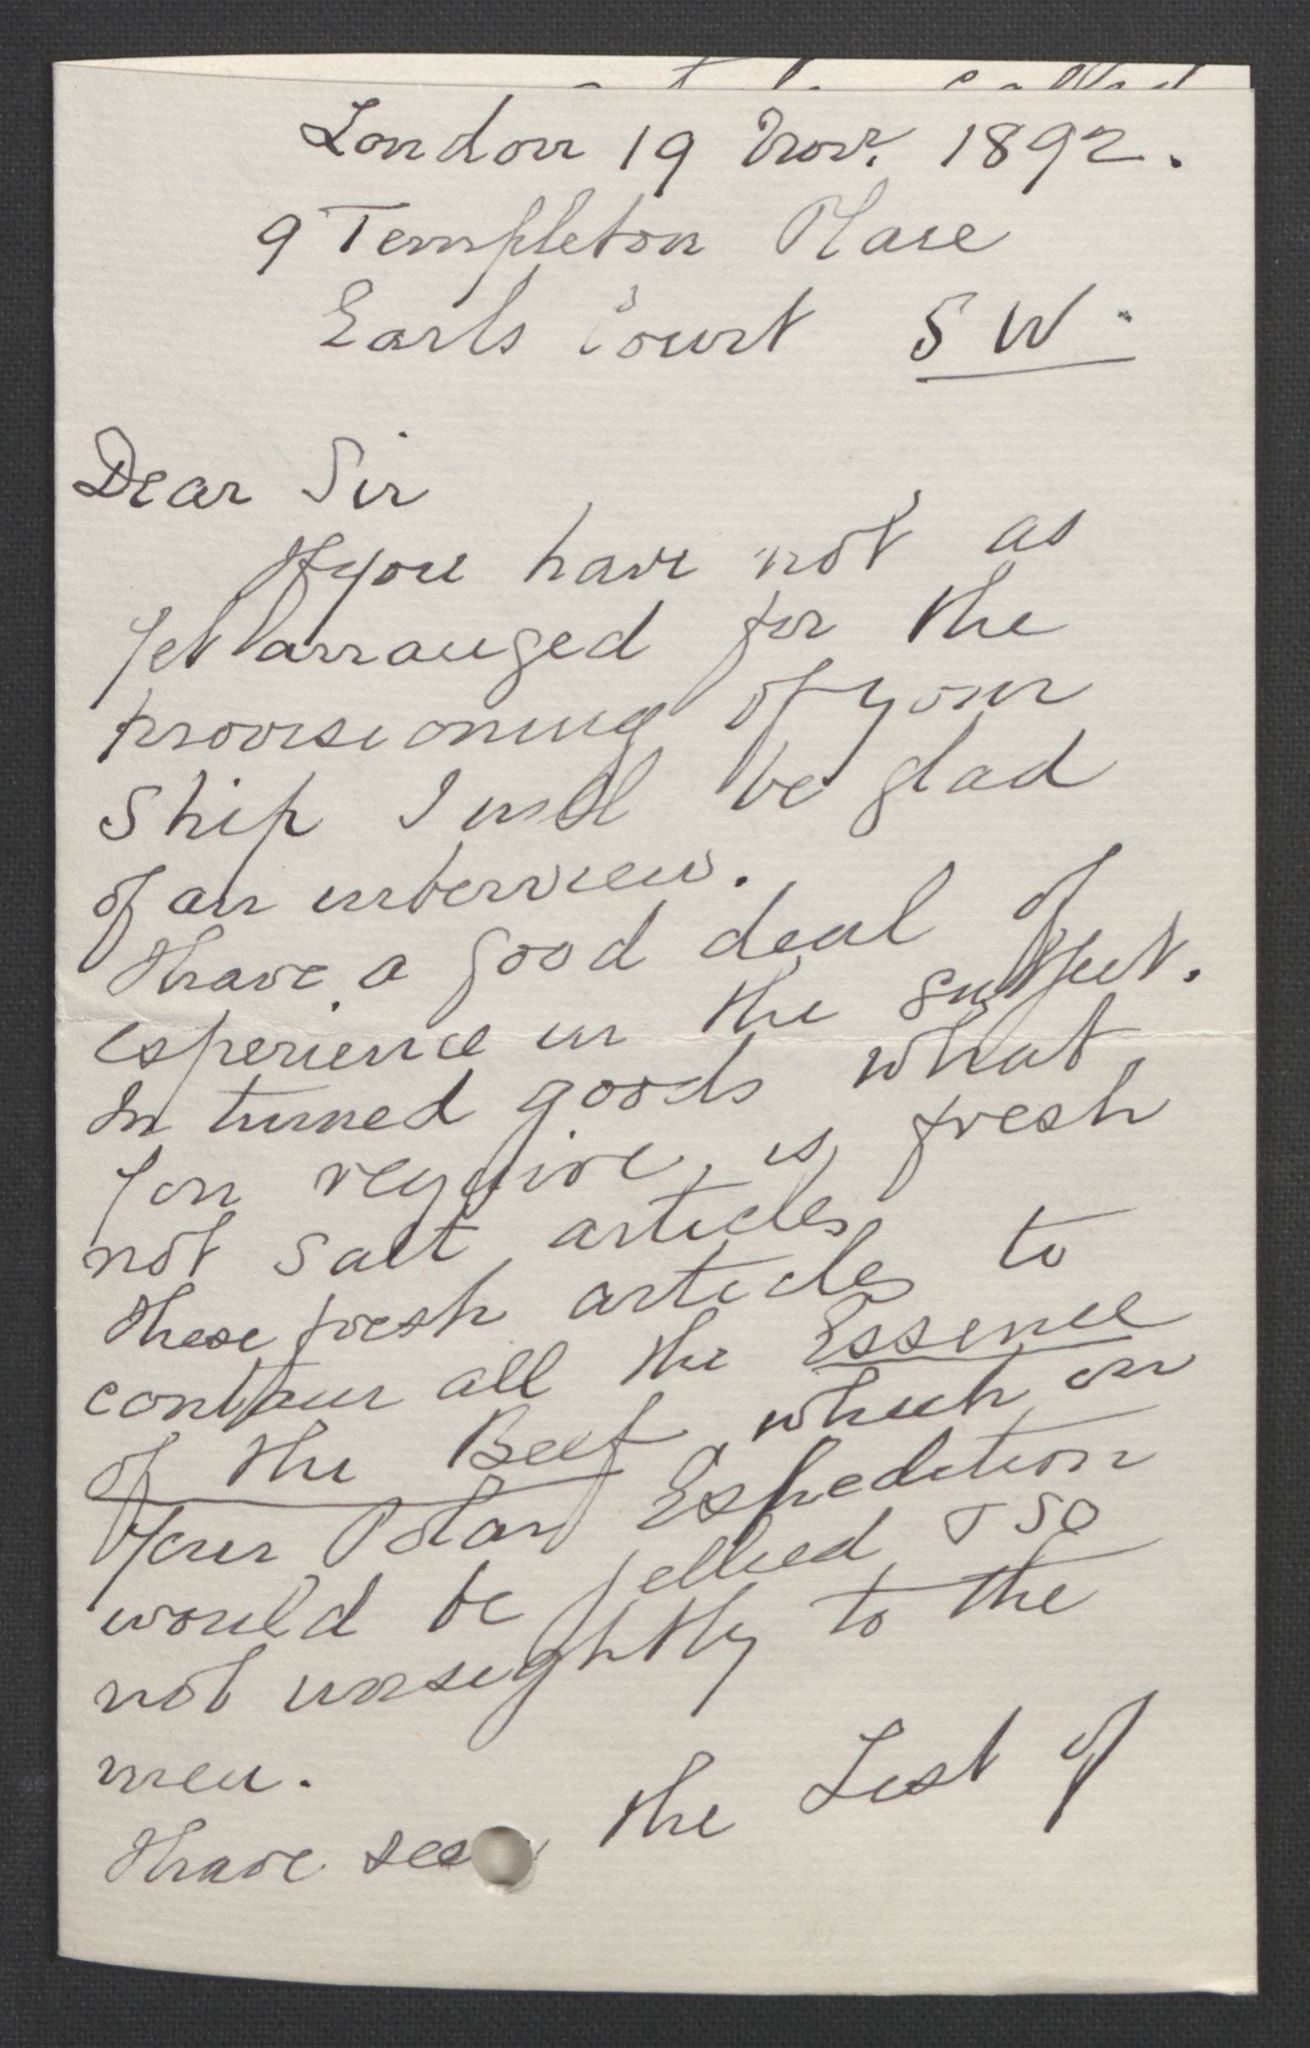 London 19 Novr. 1892.
9 Templeton Place
Earls Court S W.
Dear Sir
If you have not as
yet arranged for the
provisioning of your
Ship I will be glad
of an interview.
I have a good deal of
experience in the subject.
In tinned goods what
you require, is, fresh
not salt articles
these fresh articles to
contain all the Essence
of the Beef which on
your Polar Expedition
would be jellied & so
not unsightly to the
men.
I have seen the List of